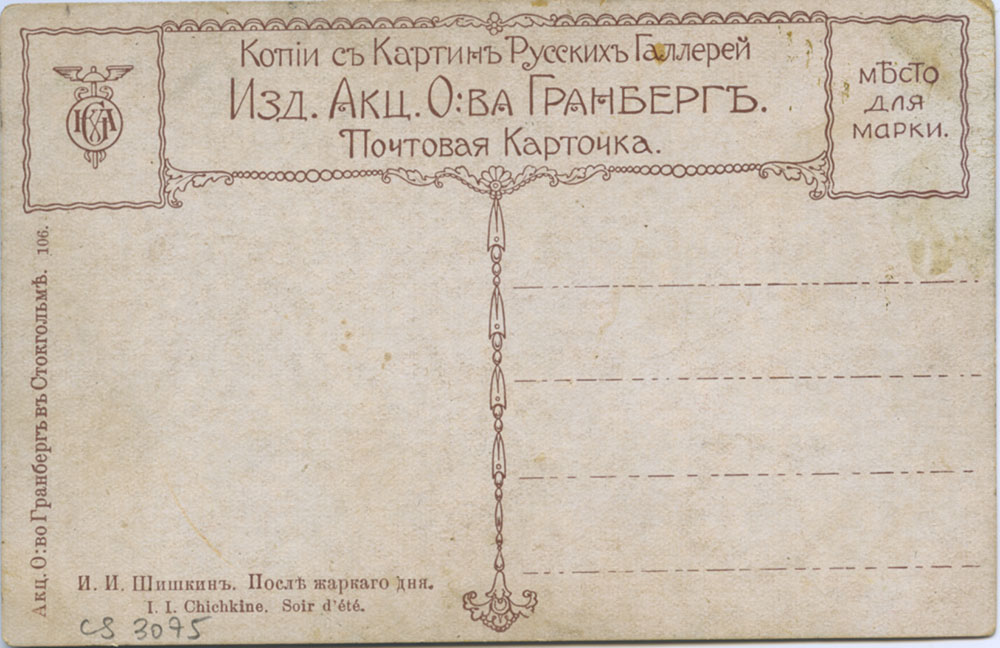 Копіи съ Картинъ Русскихъ Галлерей
Изд. Акц. О:ва Гранбергъ.
Почтовая Карточка.
мѣсто
для
марки.
Акц. О:во Гранбергъ въ Стокгольмѣ. 106.
И. И. Шишкинъ. Послѣ жаркаго дня.
I. I. Chichkine. Soir d'été.
CS 3075